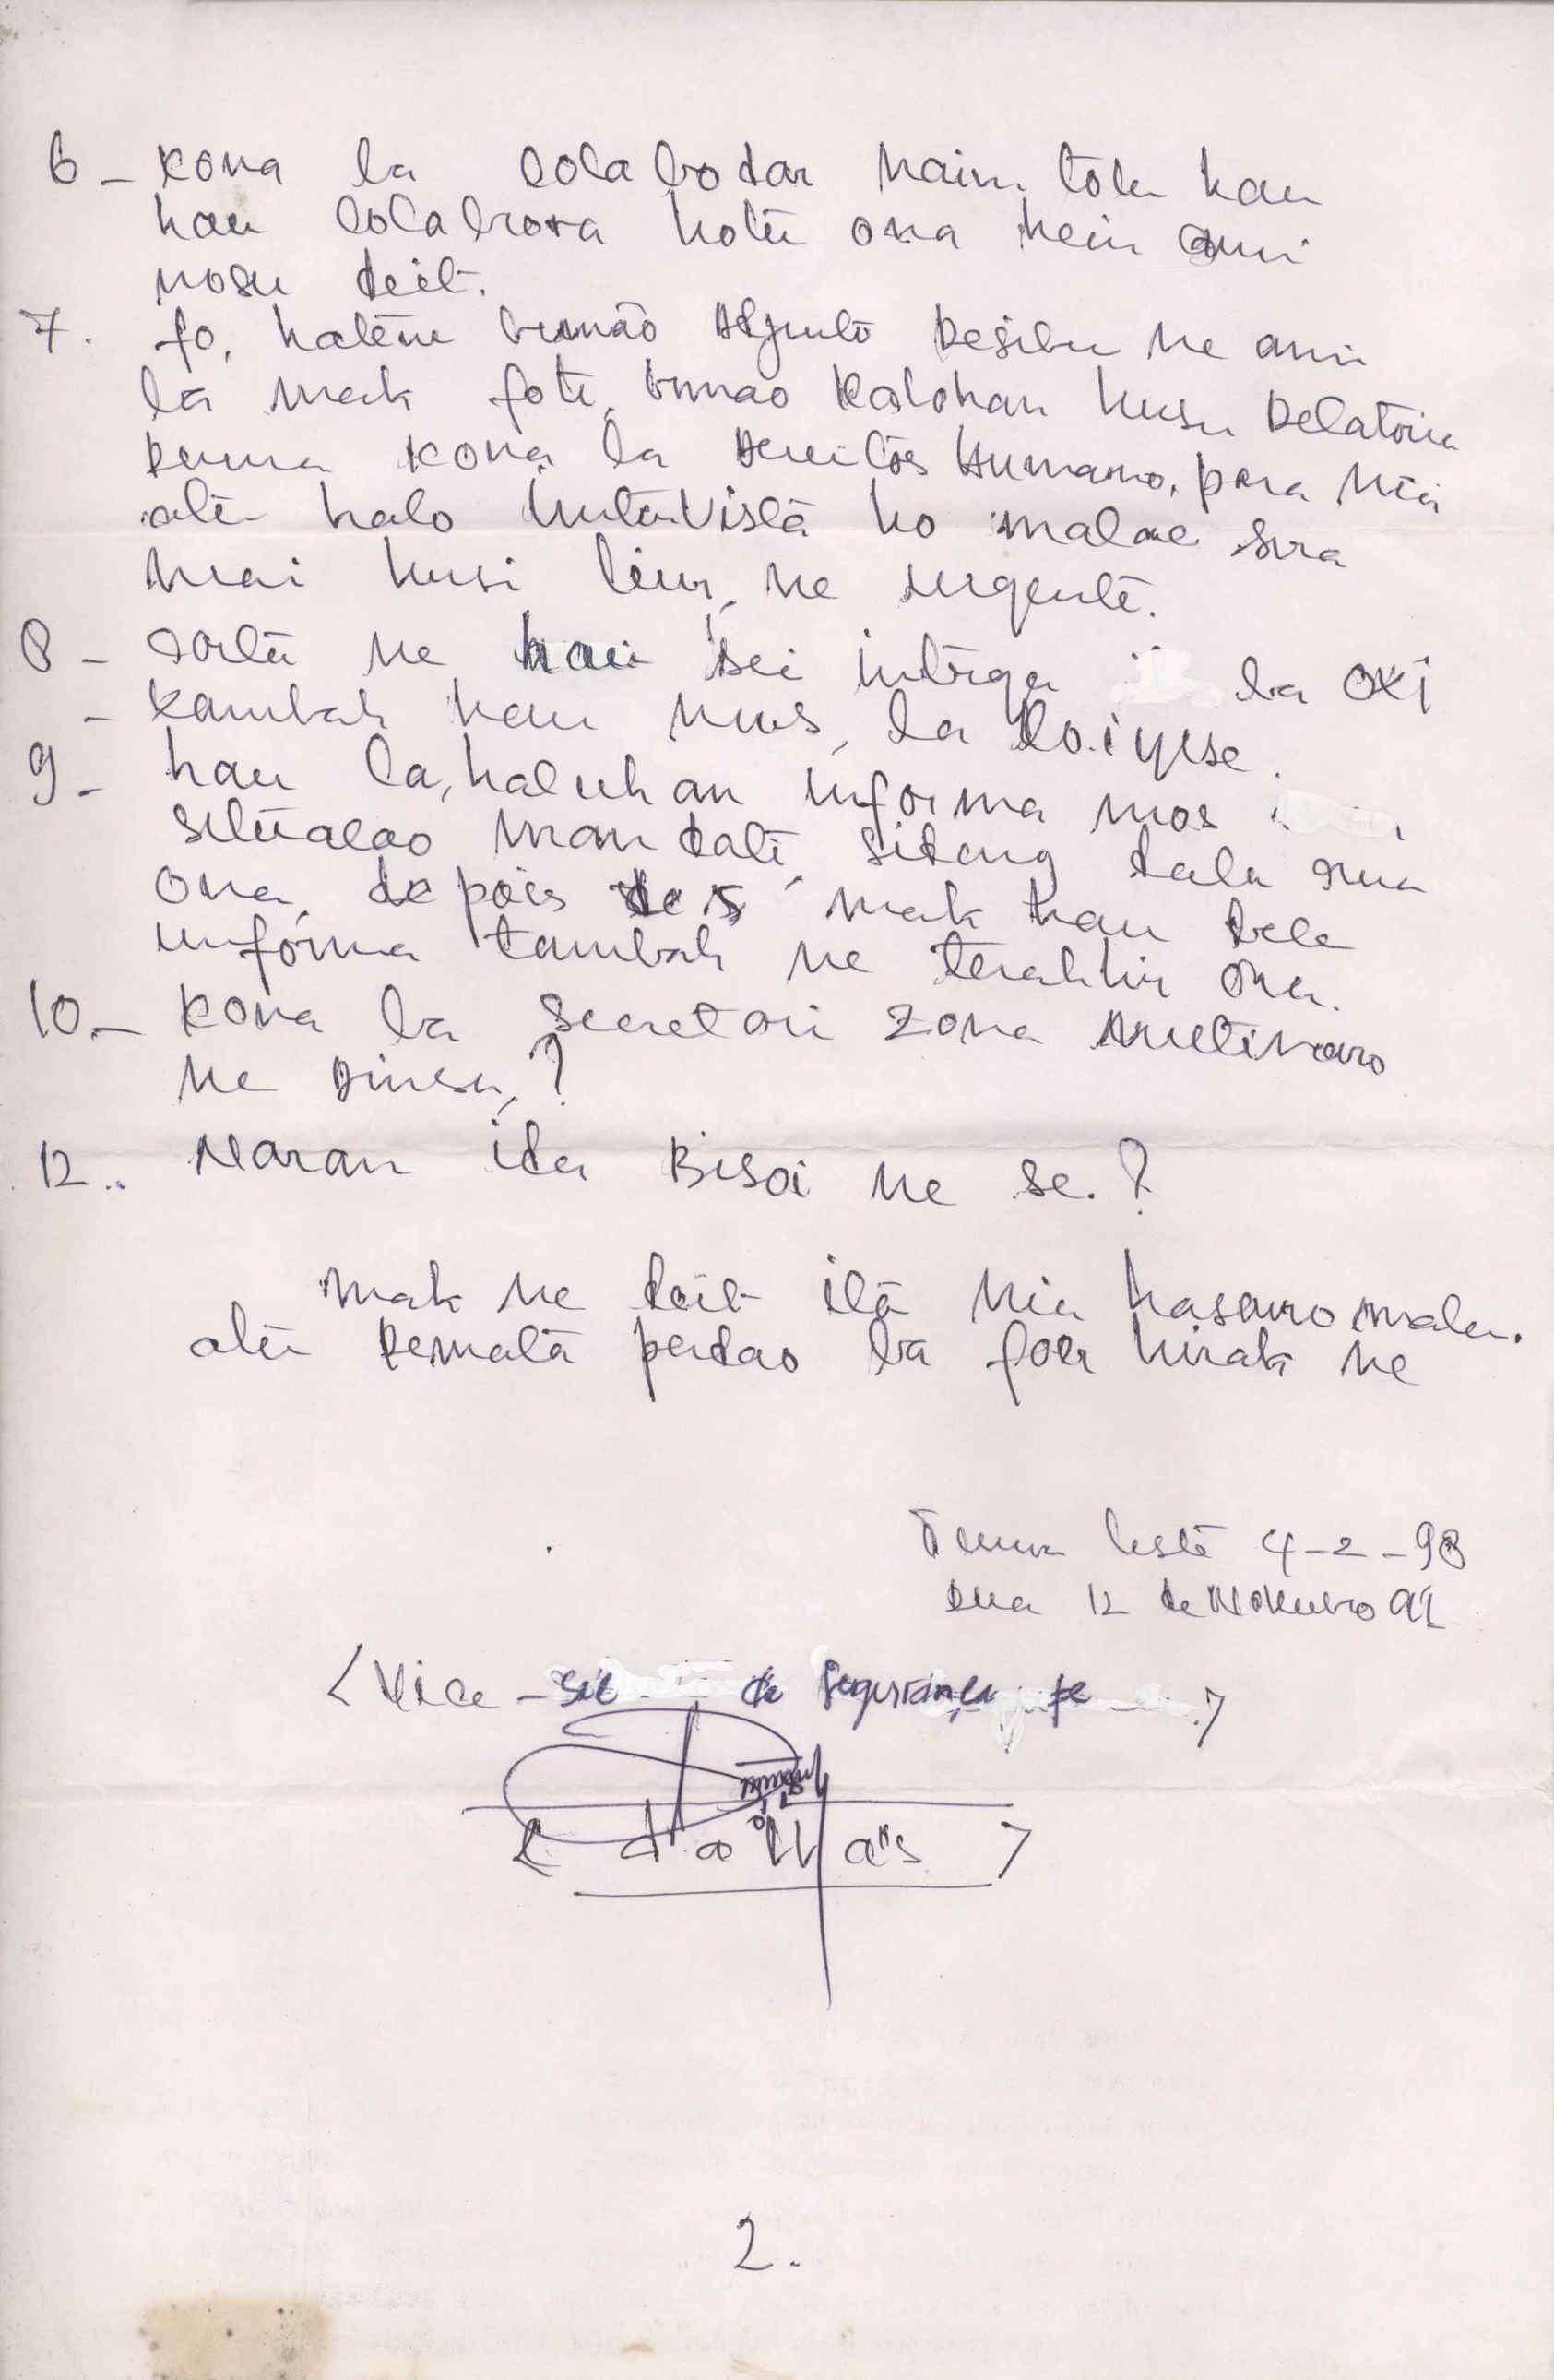 6 - Kona ba colabodar nain tolu hau
hau colabora hotu ona hein ami
nosu deit.
7. fo, hatene irmão Adjunto Resibu ne ami
la mak foti, irmao Kalohan husu Relatoriu
ruma kona ba direitos Humano, para nia
atu halo intervista ho malae sira
mai husi liur, ne urgente.
8 - carta ne hau sei intrega ba OXI
- tambah hau mos, la
9 - hau la, haluhan informa mos
situacao mandati, sidang dala rua
ona, depois de 5 mak hau bele
informa tambah ne terakhir ona.
10. - Kona ba Secretari zona Metinaro
ne dinsu, ?
12.. Naran ida Bisoi ne se. ?
mak ne deit ita nia hasouro malu.
atu Remata perdao ba foer hirak ne
Timur leste 4-2-98
Rua 12 de Novembro 91
<Vice - de Segurança >
< dallas >
2.